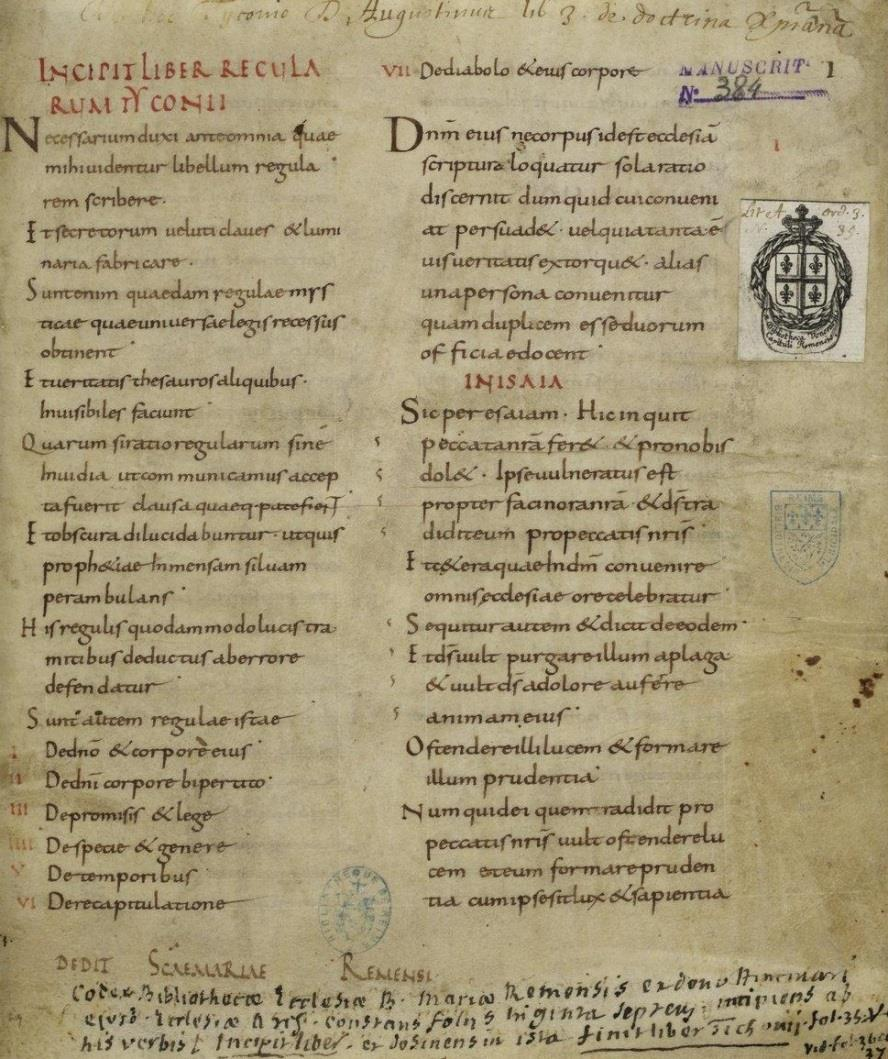 Tyconio D. Augustinus lib 3. de doctrina Xpiana
INCIPIT LIBER REGULA
RUM TYCONII
Necessarium duxi ante omnia quae
mihi uidentur libellum regula
rem scribere.
Et secretorum ueluti claues & lumi
naria fabricare.
Sunt enim quaedam regulae mys
ticae quae uniuersae legis recessus
obtinent
Et ueritatis thesauros aliquibus.
Inuisibiles faciunt
Quarum si ratio regularum sine
Inuidia ut communicamus accep
ta fuerit clausa quaeq. patefient
Et obscura dilucidabuntur. ut quis
proph&iae Inmensam siluam
perambulans
His regulis quodammodo lucis tra
mitibus deductus ab errore
defendatur
Sunt autem regulae istae
I De dnō & corpore eius
II De dnī corpore bipertito
III De promisis & lege
IIII De specie & genere
V De temporibus
VI De recapitulatione
VII De diabolo & eius corpore
MANUSCRIT 1
No. 384
Dnm̄ eius ne corpus id est ecclesiā
scriptura loquatur sola ratio
discernit dum quid cui conueni
at persuad&. uel quia tanta ē
uis ueritatis extorqu&. alias
una persona conuenitur
quam duplicem esse duorum
officia edocent
IN ISAIA
Sic per esaiam. Hic inquit
peccata nrā fer& & pro nobis
dol&. Ipse uulneratus est
propter facinora nrā & ds̄ tra
didit eum pro peccatis nrīs
Et c&era quae In dnm̄ conuenire
omnis ecclesiae ore celebratur
Sequitur autem & dicit de eodem.
Et ds̄ uult purgare illum a plaga
& uult ds̄ a dolore auferre
animam eius
Ostendere illi lucem & formare
illum prudentia
Numquid ei quem tradidit pro
peccatis nrīs uult ostendere lu
cem et eum formare pruden
tia cum ipse sit lux & sapientia
Lit. A ord. 3.
N. 39.
Bibliotheca Venerab.
Capituli Remensis
DEDIT SCAE MARIAE REMENSI
Codex Bibliothecæ Ecclesiæ B. Mariæ Remensis ex dono Hincmari
ejusd. Ecclesiæ Arch. constans foliis triginta septem. incipiens ab
his verbis: Incipit liber. et desinens in ista finit liber